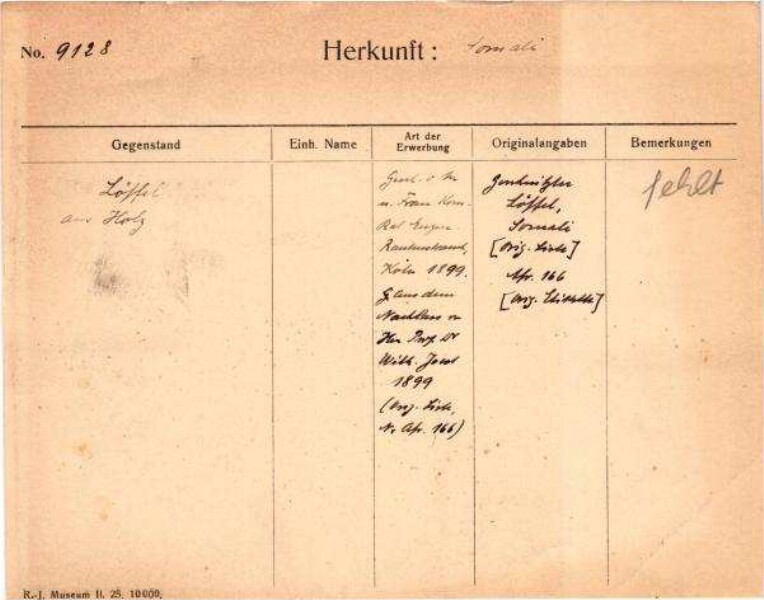 No. 9128
Herkunft: Somali
Gegenstand
Einh. Name
Art der Erwerbung
Originalangaben
Bemerkungen
Löffel
aus Holz
Gesch. v. Hr
u. Frau Kom.
Rat Eugen
Rautenstrauch,
Köln 1899.
G. aus dem
Nachlass v.
Herr Prof. Dr
Wilh. Joest
1899
(Orig. Liste,
Nr Afr. 166)
Geschnitzter
Löffel,
Somali
[Orig. Liste]
Afr. 166
[Orig. Etikette]
fehlt
R.-J. Museum II. 25. 10000.